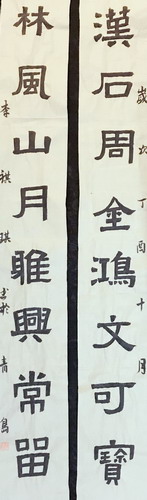 歲次丁酉十月
漢石周金鴻文可寶
林風山月雅興常留
李祺琪書於青島